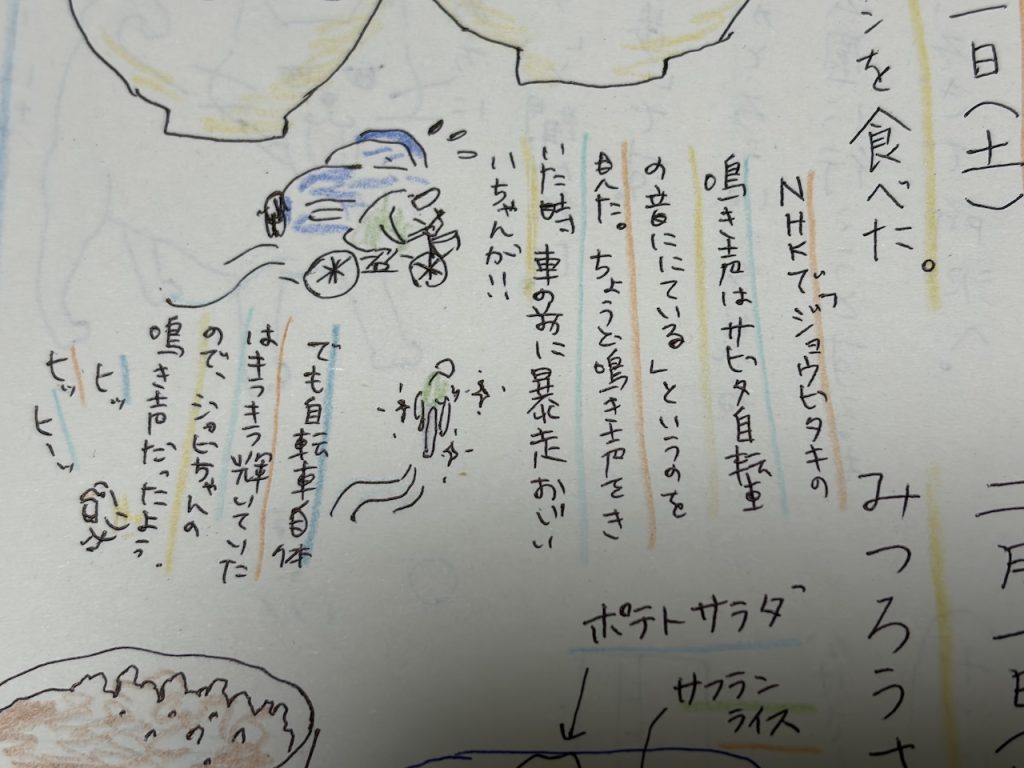 一日(土)
ンを食べた。
NHKで「ジョウビタキの
鳴き声はサビタ自転車
の音ににている」というのを
見た。ちょうど鳴き声をき
いた時、車の前に暴走おじい
いちゃんが!!
でも自転車自体
はキラキラ輝いていた
ので、ジョビちゃんの
鳴き声だったよう。
ヒッ
ヒッ
ヒーッ
二月一日(
みつろうさ
ポテトサラダ
サフラン
ライス